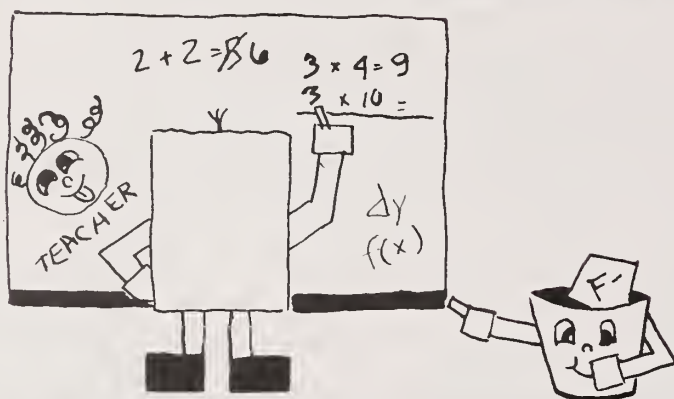 2 + 2 = 6
3 × 4 = 9
3 × 10 =
TEACHER
Δy
f(x)
F-